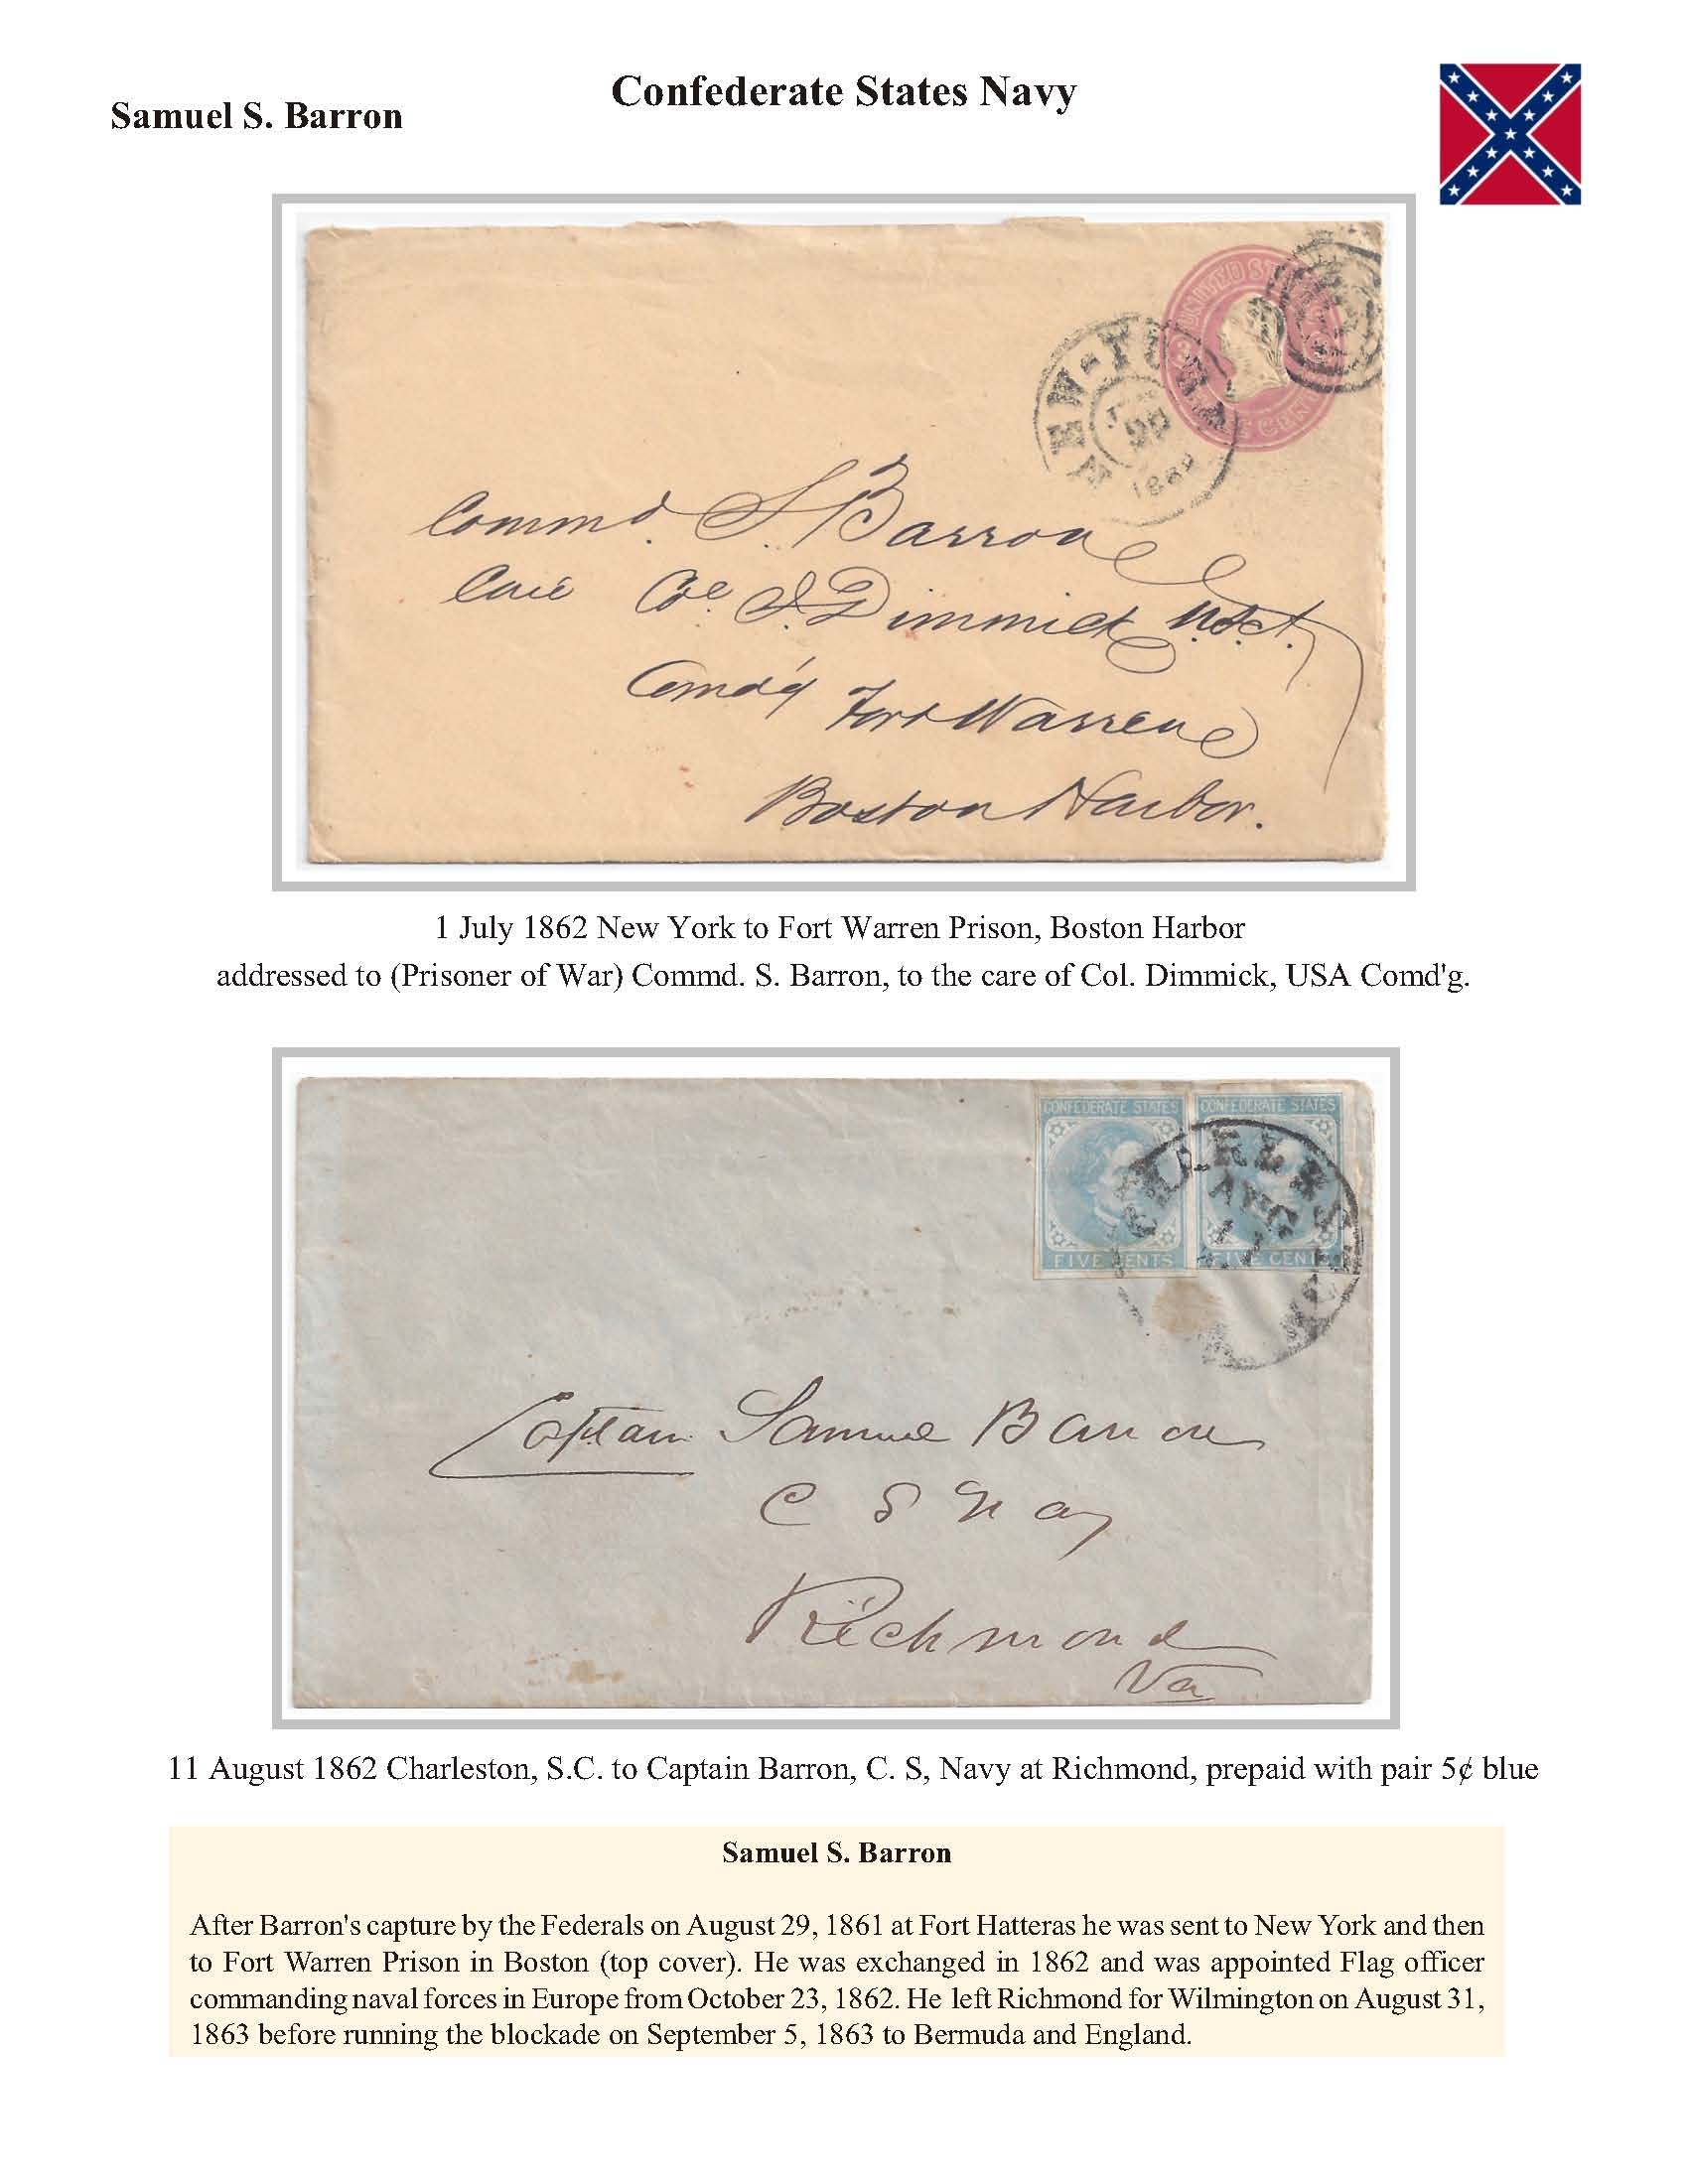 Confederate States Navy
Samuel S. Barron
UNITED ST
NEW-YORK
1862
Commd. S. Barron
Care Col J. Dimmick U.S.A.
Comd'g Fort Warren
Boston Harbor.
1 July 1862 New York to Fort Warren Prison, Boston Harbor
addressed to (Prisoner of War) Commd. S. Barron, to the care of Col. Dimmick, USA Comd'g.
CONFEDERATE STATES CONFEDERATE STATES
CHARLES
AUG
11
FIVE CENTS FIVE CENT
Captain Samuel Barron
C S Navy
Richmond
Va
11 August 1862 Charleston, S.C. to Captain Barron, C. S, Navy at Richmond, prepaid with pair 5¢ blue
Samuel S. Barron
After Barron's capture by the Federals on August 29, 1861 at Fort Hatteras he was sent to New York and then
to Fort Warren Prison in Boston (top cover). He was exchanged in 1862 and was appointed Flag officer
commanding naval forces in Europe from October 23, 1862. He left Richmond for Wilmington on August 31,
1863 before running the blockade on September 5, 1863 to Bermuda and England.